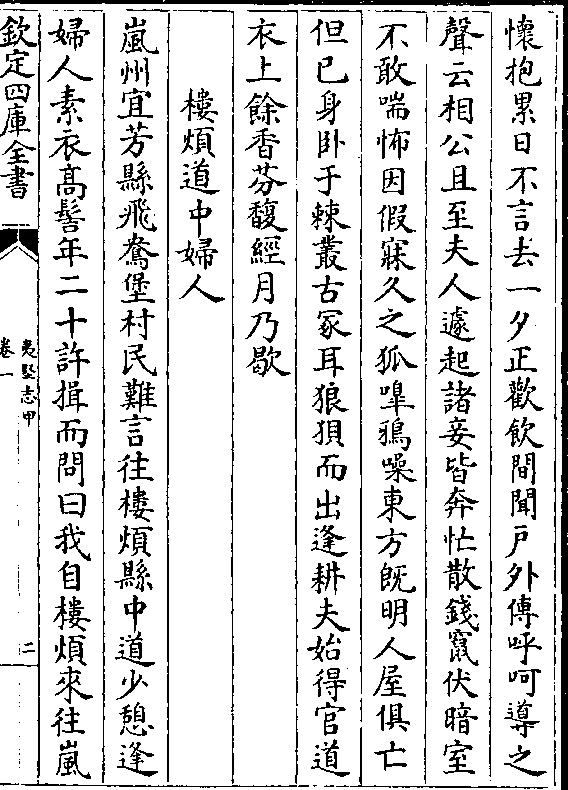 懷抱累日不言去一夕正歡飲間聞戶外傳呼呵導之
聲云相公且至夫人遽起諸妾皆奔忙散錢竄伏暗室
不敢喘怖因假寐久之狐嘷鴉噪東方既明人屋俱亡
但已身卧于棘叢古冢耳狼狽而出逢耕夫始得官道
衣上餘香芬馥經月乃歇
樓煩道中婦人
嵐州宜芳縣飛鳶堡村民難言往樓煩縣中道少憩逢
婦人素衣高髻年二十許揖而問曰我自樓煩來往嵐
欽定四庫全書
夷堅志甲
卷一
二